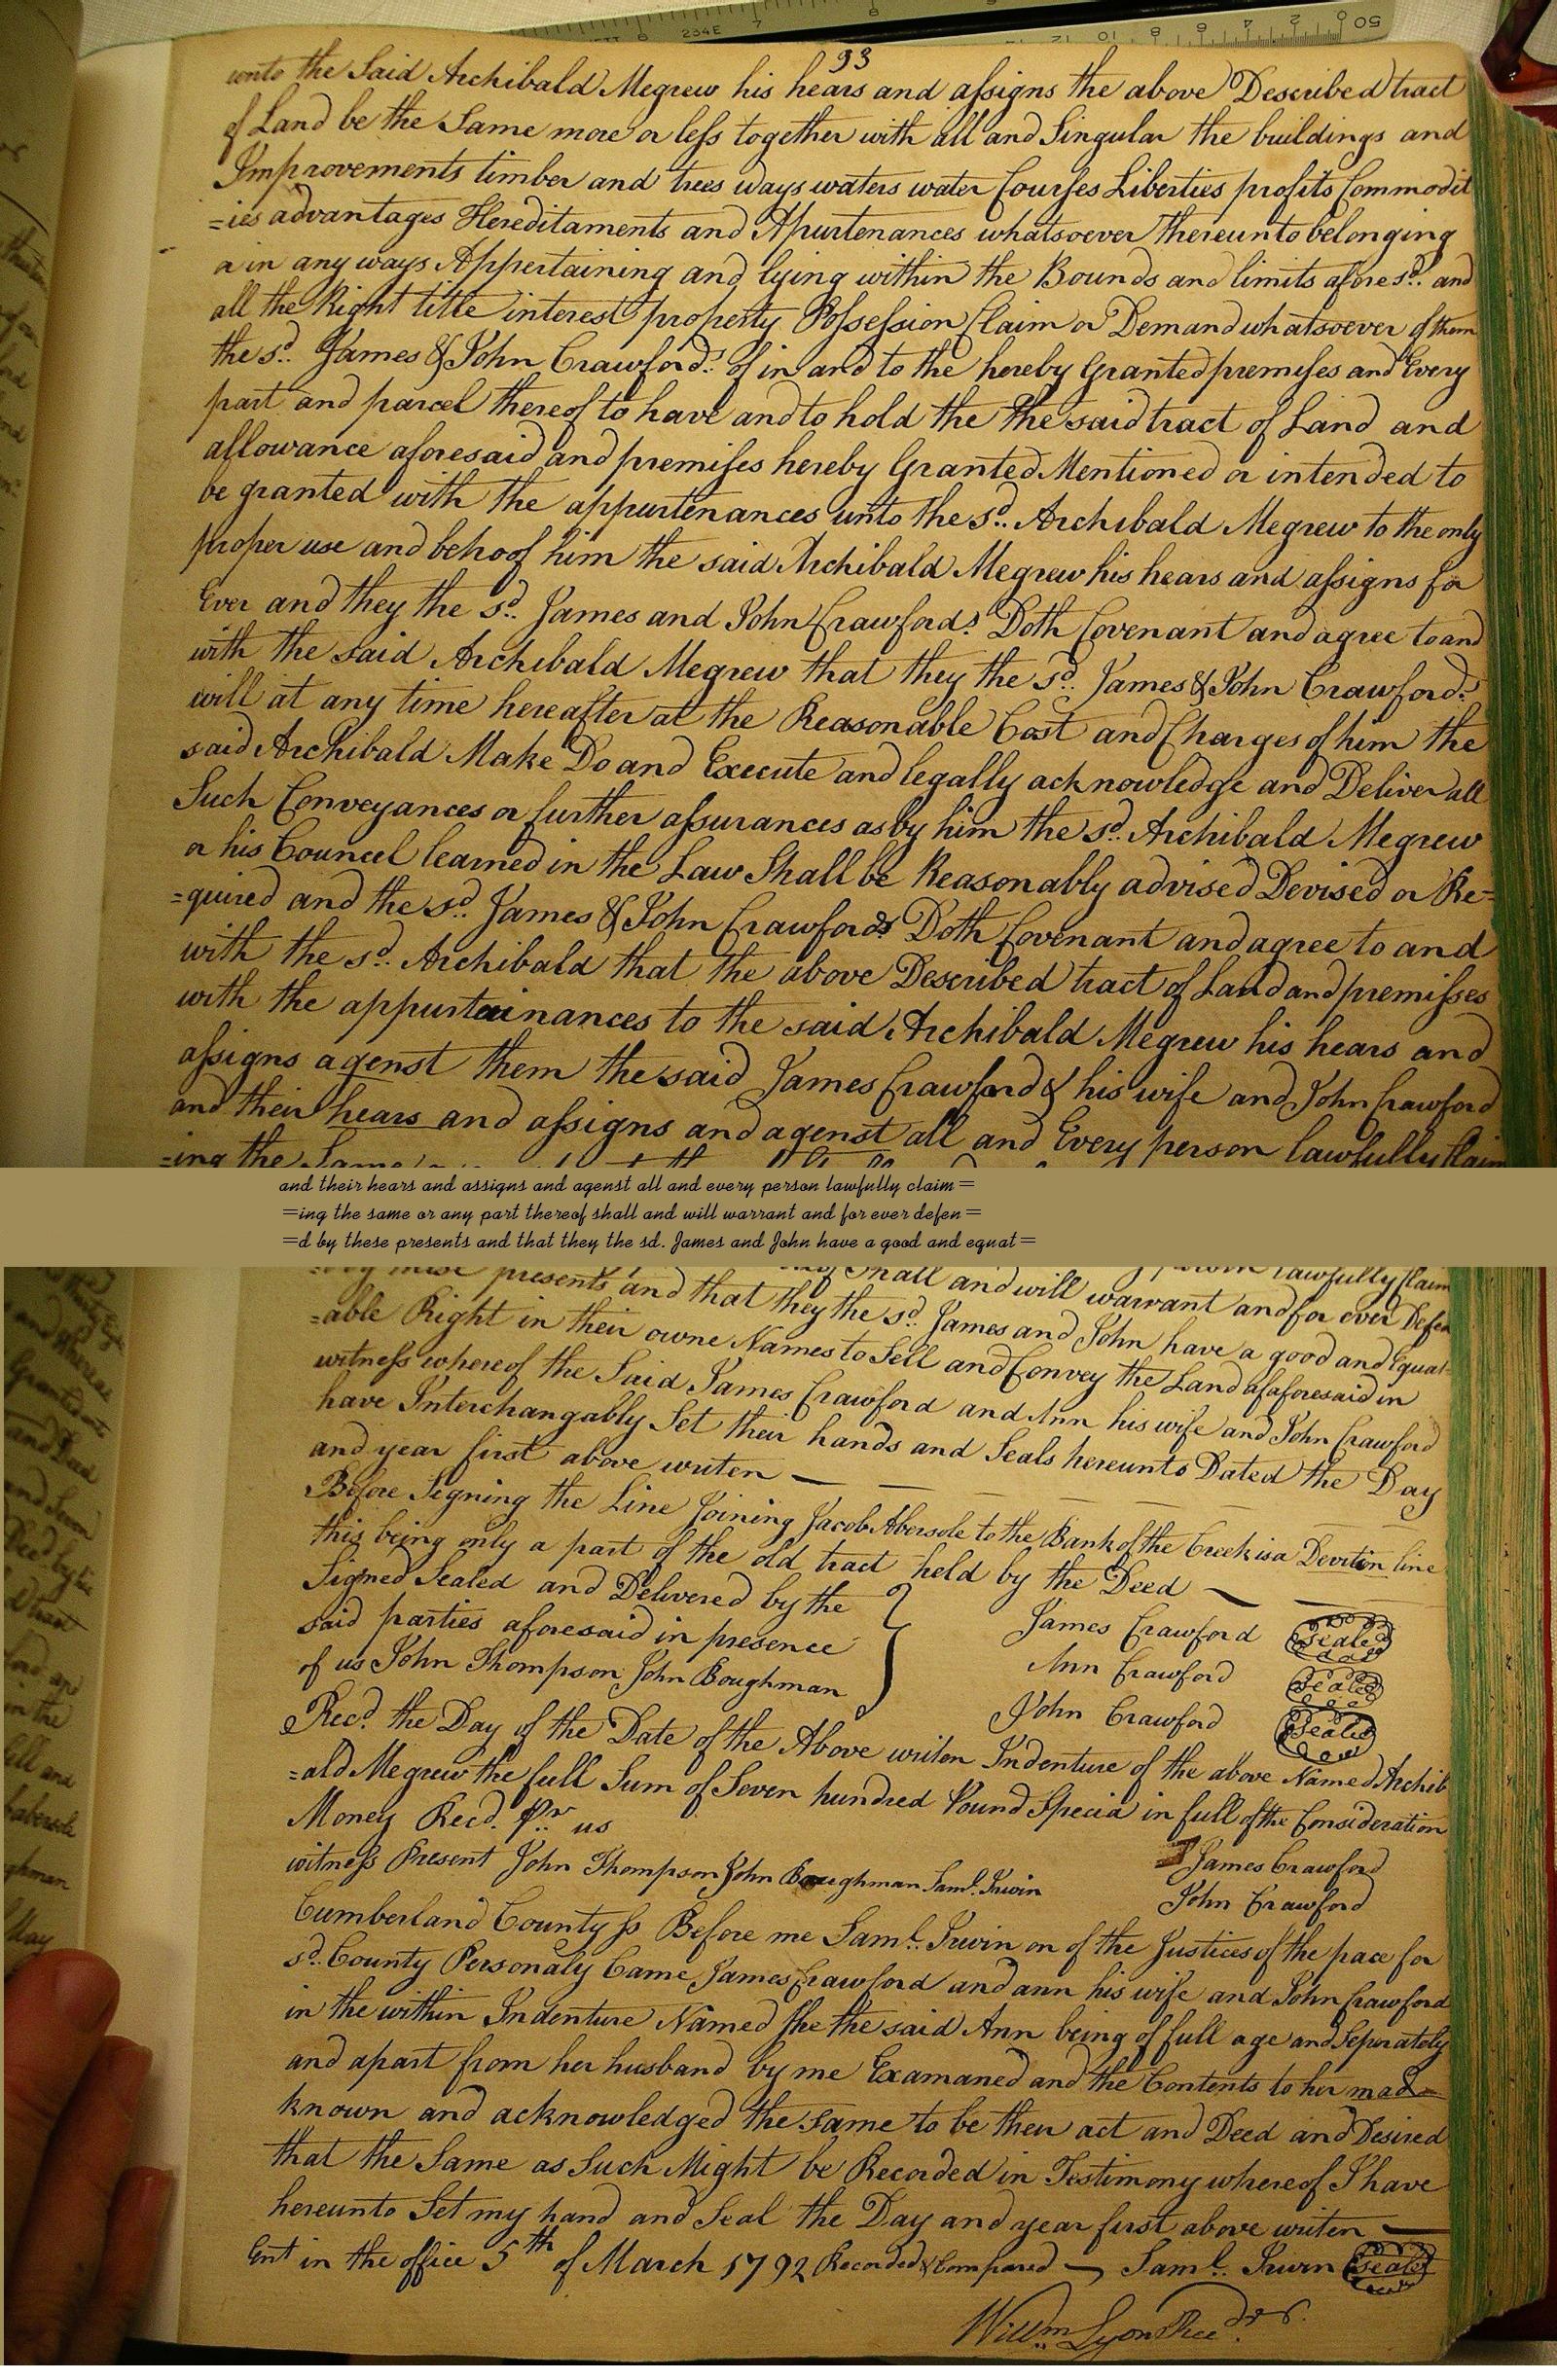 93
unto the Said Archibald Megrew his hears and assigns the above Described tract
of Land be the Same more or less together with all and Singular the buildings and
Improvements timber and trees ways waters water Courses Liberties profits Commodit
=ies advantages Hereditaments and Apurtenances whatsoever thereunto belonging
or in any ways Appertaining and lying within the Bounds and limits afores.d and
all the Right title interest property Possession Claim or Demand whatsoever of them
the s.d James & John Crawford.s of in and to the hereby Granted premises and Every
part and parcel thereof to have and to hold the the said tract of Land and
allowance aforesaid and premises hereby Granted Mentioned or intended to
be granted with the appurtenances unto the s.d Archibald Megrew to the only
proper use and behoof him the said Archibald Megrew his hears and assigns for
Ever and they the s.d James and John Crawford.s Doth Covenant and agree to and
with the said Archibald Megrew that they the s.d James & John Crawford.s
will at any time hereafter at the Reasonable Cost and Charges of him the
said Archibald Make Do and Execute and legally acknowledge and Deliver all
Such Conveyances or further assurances as by him the s.d Archibald Megrew
or his Councel learned in the Law Shall be Reasonably advised Devised or Re=
=quired and the s.d James & John Crawfords Doth Covenant and agree to and
with the s.d Archibald that the above Described tract of Land and premisses
with the appurtainances to the said Archibald Megrew his hears and
assigns agenst them the said James Crawford & his wife and John Crawford
and their hears and assigns and agenst all and Every person lawfully Claim
=ing the Same
and their hears and assigns and agenst all and every person lawfully claim=
=ing the same or any part thereof shall and will warrant and for ever defen=
=d by these presents and that they the sd. James and John have a good and equat=
shall and will warrant and for ever Defen
by these presents and that they the s.d James and John have a good and Equat=
=able Right in their owne Names to Sell and Convey the Land afaforesaid in
witness whereof the Said James Crawford and Ann his wife and John Crawford
have Interchangably Set their hands and Seals hereunto Dated the Day
and year first above writen —
Before Segning the Line Joining Jacob Abersole to the Bank of the Creek is a Devition line
this being only a part of the old tract held by the Deed —
Signed Sealed and Delivered by the
said parties aforesaid in presence
of us John Thompson John Boughman
James Crawford Sealed
Ann Crawford Sealed
John Crawford Sealed
Rec.d the Day of the Date of the Above writen Indenture of the above Named Archib
=ald Megrew the full Sum of Seven hundred Pound Specia in full of the Consideration
Money Rec.d P.r us
witness Present John Thompson John Boughman Sam.l Irwin
James Crawford
John Crawford
Cumberland County ss Before me Sam.l Irwin on of the Justices of the pace for
s.d County Personaly Came James Crawford and ann his wife and John Crawford
in the within Indenture Named She the said Ann being of full age and Seperately
and apart from her husband by me Examaned and the Contents to her made
known and acknowledged the same to be their act and Deed and Desired
that the Same as Such Might be Recorded in Testimony whereof I have
hereunto Set my hand and Seal the Day and year first above writen —
Ent in the office 5th of March 1792 Recorded & Compared — Sam.l Irwin Sealed
Will.m Lyon Rec.dr